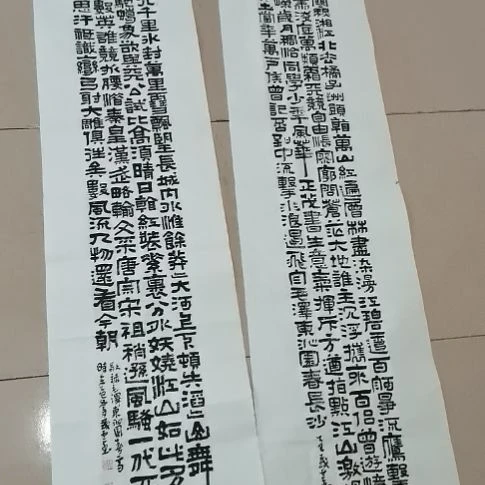 湘江北去橘子洲頭看萬山紅遍層林盡染漫江碧透百舸爭流鷹擊
淺底萬類霜天競自由悵寥廓問蒼茫大地誰主沉浮攜來百侶曾遊憶
嶸歲月稠恰同學少年風華正茂書生意氣揮斥方遒指點江山激揚
土當年萬戶侯曾記否到中流擊水浪遏飛舟毛澤東沁園春長沙
光千里冰封萬里雪飄望長城內外惟餘莽=大河上下頓失滔=山舞
馳蠟象欲與天公試比高須晴日看紅裝素裹分外妖嬈江山如此多
數英雄競折腰惜秦皇漢武略輸文采唐宗宋祖稍遜風騷一代天
思汗祗識彎弓射大雕俱往矣數風流人物還看今朝